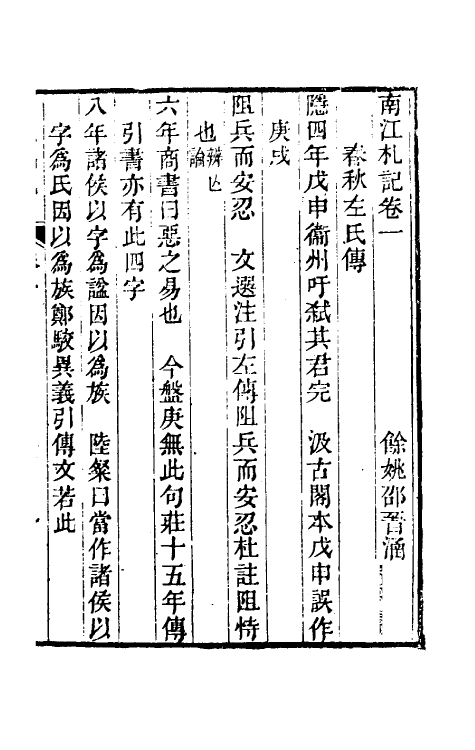 南江札記卷一
餘姚邵晉涵
春秋左氏傳
隱四年戊申衞州吁弒其君完　汲古閣本戊申誤作
庚戌
阻兵而安忍　文選注引左傳阻兵而安忍杜註阻恃
也辨亾論
六年商書曰惡之易也　今盤庚無此句莊十五年傳
引書亦有此四字
八年諸侯以字為諡因以為族　陸粲曰當作諸侯以
字為氏因以為族鄭駮異義引傳文若此